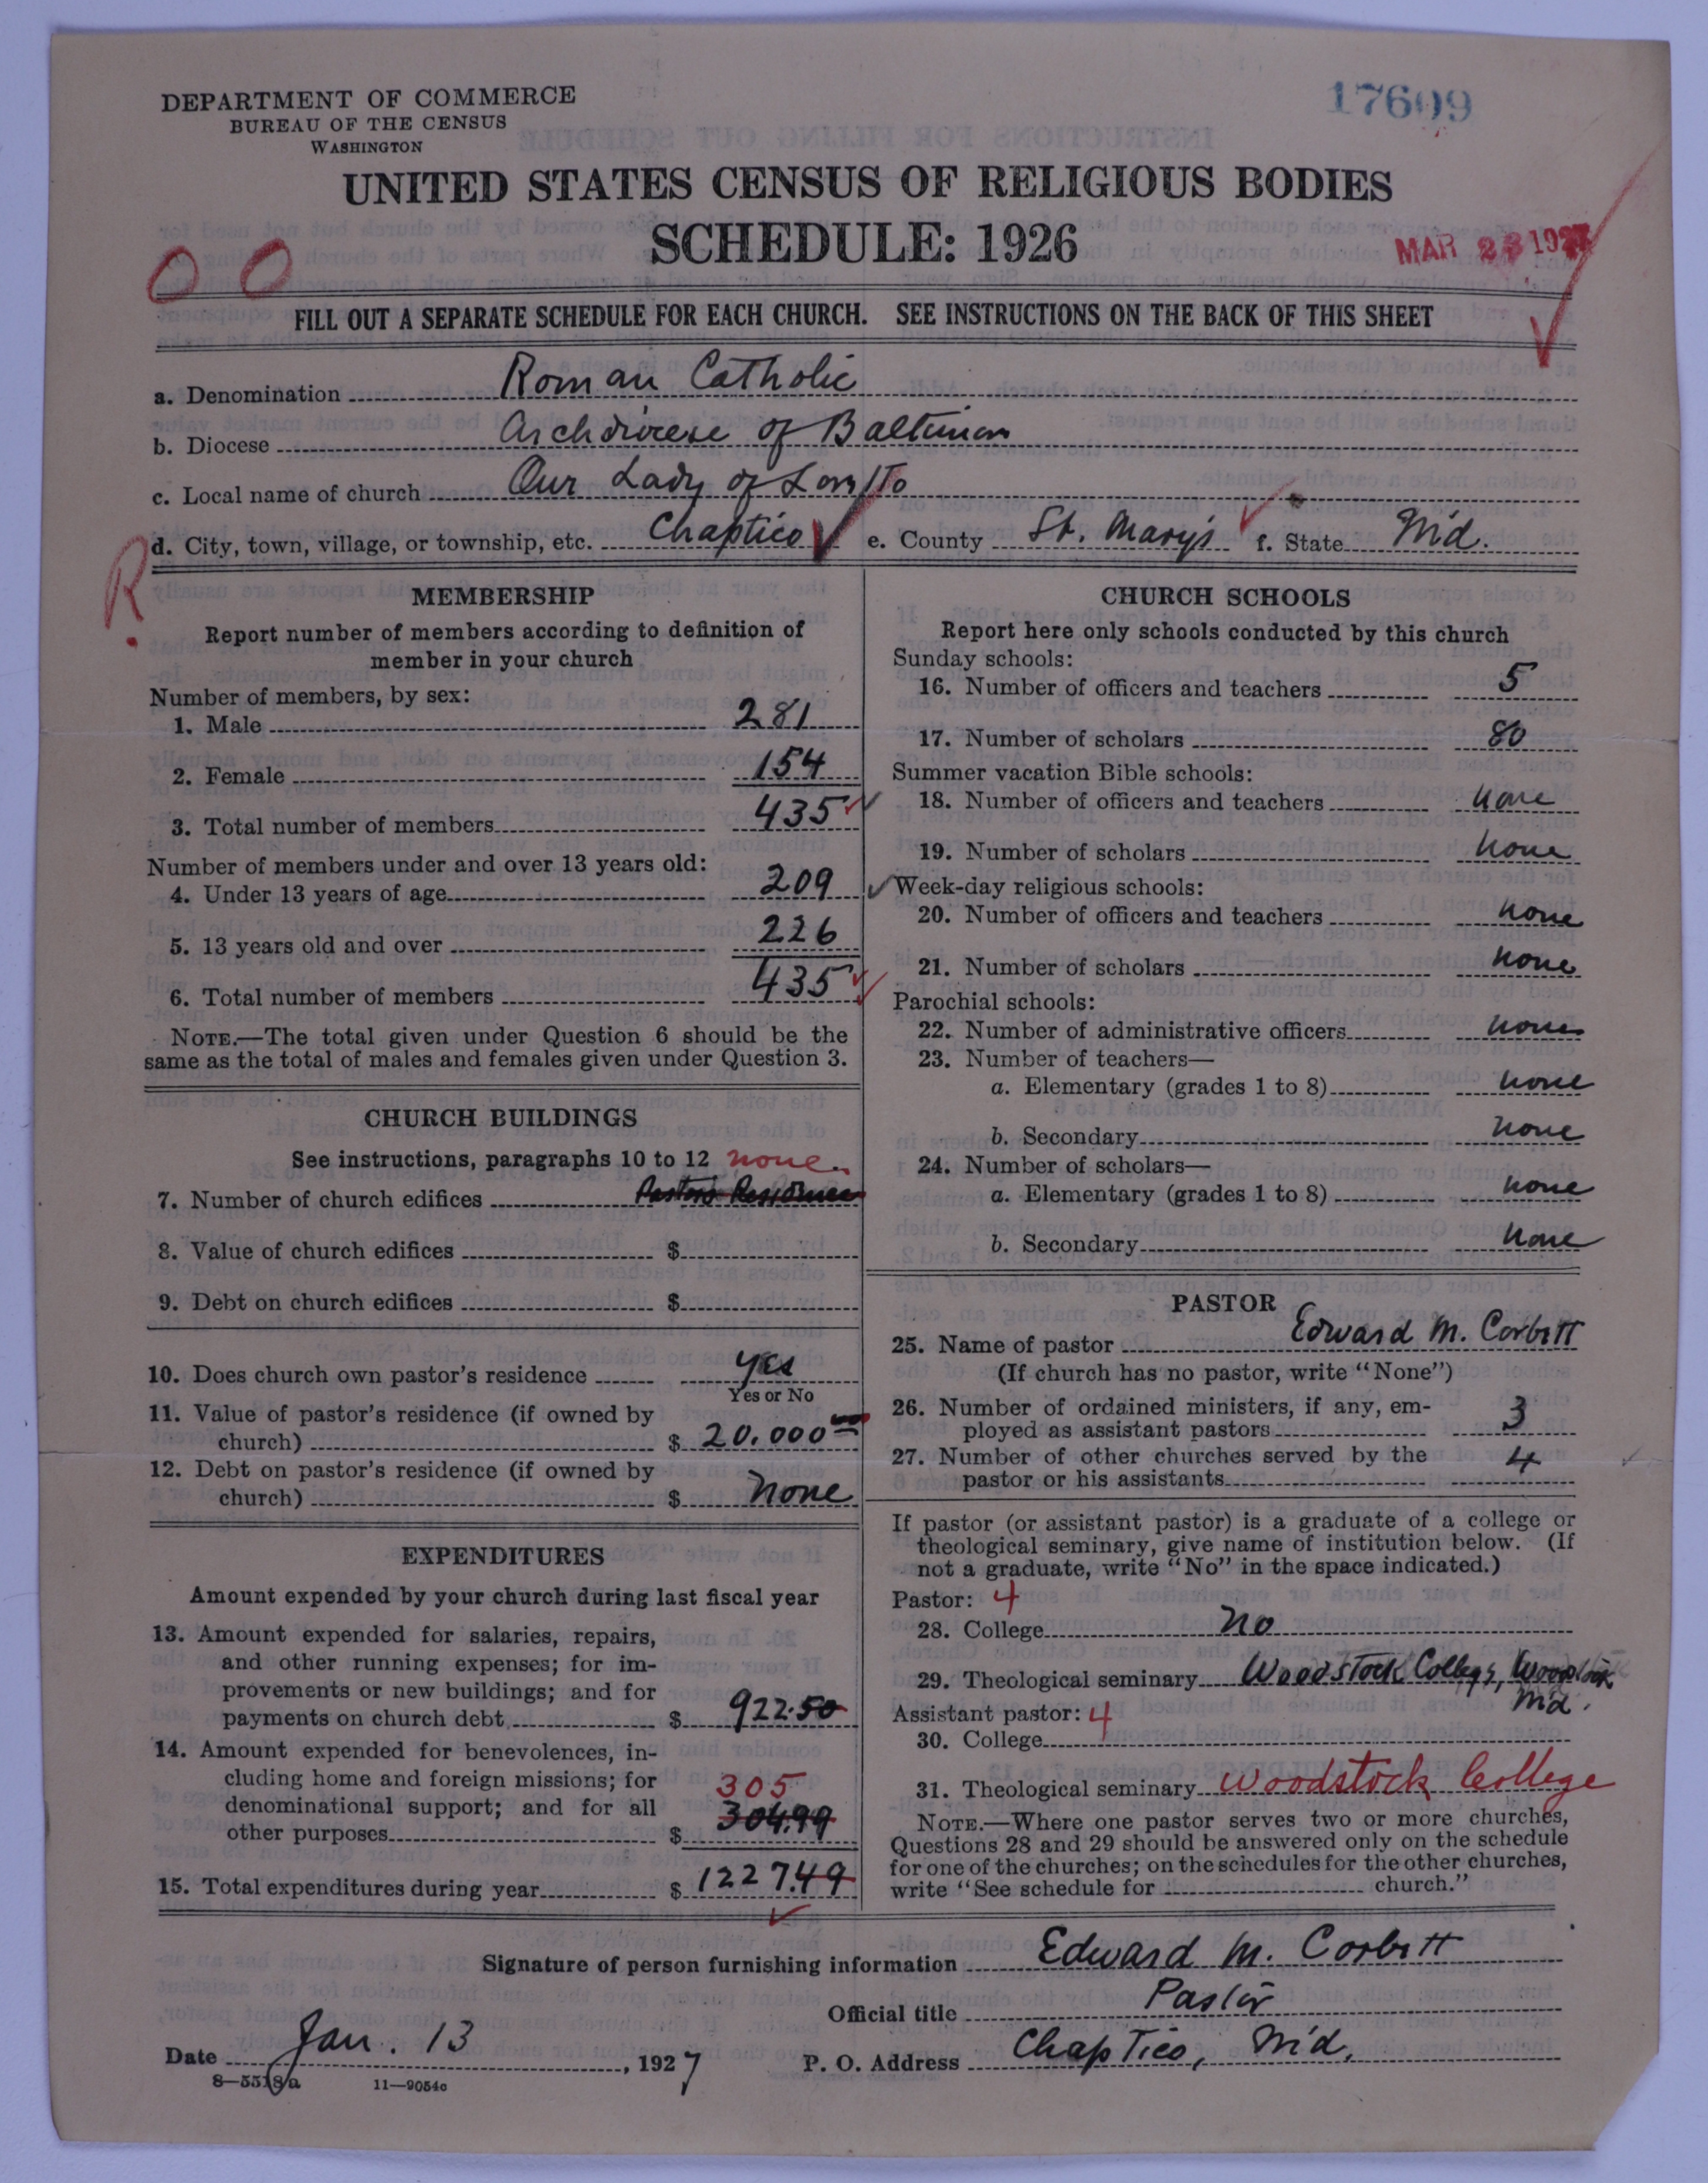 DEPARTMENT OF COMMERCE
BUREAU OF THE CENSUS
WASHINGTON
17609
UNITED STATES CENSUS OF RELIGIOUS BODIES
SCHEDULE: 1926
MAR 23 1927
0 0
FILL OUT A SEPARATE SCHEDULE FOR EACH CHURCH. SEE INSTRUCTIONS ON THE BACK OF THIS SHEET
a. Denomination Roman Catholic
b. Diocese Archdiocese of Baltimore
c. Local name of church Our Lady of Loretto
d. City, town, village, or township, etc. Chaptico e. County St. Mary's f. State Md.
R
MEMBERSHIP
Report number of members according to definition of
member in your church
Number of members, by sex:
1. Male 281
2. Female 154
3. Total number of members 435
Number of members under and over 13 years old:
4. Under 13 years of age 209
5. 13 years old and over 226
6. Total number of members 435
NOTE.—The total given under Question 6 should be the
same as the total of males and females given under Question 3.
CHURCH BUILDINGS
See instructions, paragraphs 10 to 12 none
7. Number of church edifices Pastors Residence
8. Value of church edifices $
9. Debt on church edifices $
10. Does church own pastor's residence yes
Yes or No
11. Value of pastor's residence (if owned by
church) $ 20.000 00
12. Debt on pastor's residence (if owned by
church) $ None
EXPENDITURES
Amount expended by your church during last fiscal year
13. Amount expended for salaries, repairs,
and other running expenses; for im-
provements or new buildings; and for
payments on church debt $ 922.50
14. Amount expended for benevolences, in-
cluding home and foreign missions; for
305
denominational support; and for all
other purposes $ 304.99
15. Total expenditures during year $ 1227.49
CHURCH SCHOOLS
Report here only schools conducted by this church
Sunday schools:
16. Number of officers and teachers 5
17. Number of scholars 80
Summer vacation Bible schools:
18. Number of officers and teachers none
19. Number of scholars none
Week-day religious schools:
20. Number of officers and teachers none
21. Number of scholars none
Parochial schools:
22. Number of administrative officers none
23. Number of teachers—
a. Elementary (grades 1 to 8) none
b. Secondary none
24. Number of scholars—
a. Elementary (grades 1 to 8) none
b. Secondary none
PASTOR
25. Name of pastor Edward M. Corbett
(If church has no pastor, write "None")
26. Number of ordained ministers, if any, em-
ployed as assistant pastors 3
27. Number of other churches served by the
pastor or his assistants 4
If pastor (or assistant pastor) is a graduate of a college or
theological seminary, give name of institution below. (If
not a graduate, write "No" in the space indicated.)
Pastor: 4
28. College no
29. Theological seminary Woodstock College, Woodstock
Md.
Assistant pastor: 4
30. College
31. Theological seminary Woodstock College
NOTE.—Where one pastor serves two or more churches,
Questions 28 and 29 should be answered only on the schedule
for one of the churches; on the schedules for the other churches,
write "See schedule for church."
Signature of person furnishing information Edward M. Corbett
Official title Pastor
Date Jan. 13, 1927 P. O. Address Chaptico, Md.
8—5518a 11—9054c